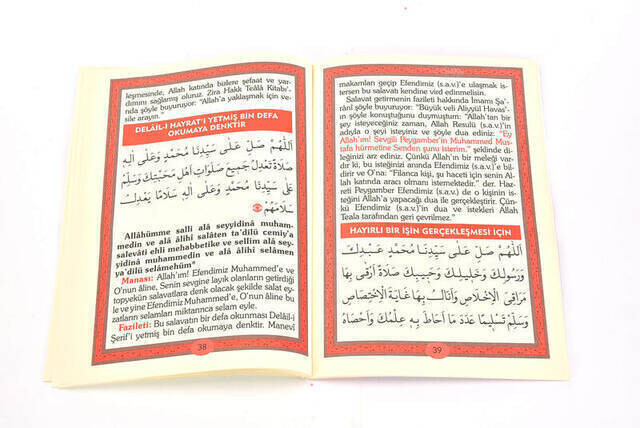 leşmesinde, Allah katında bizlere şefaat ve yar-
dımını sağlamış oluruz. Zira Hakk Teâlâ Kitabı'-
nda şöyle buyuruyor: "Allah'a yaklaşmak için ve-
sile arayın."
DELÂİL-İ HAYRAT'I YETMİŞ BİN DEFA
OKUMAYA DENKTİR
اَللّٰهُمَّ صَلِّ عَلٰى سَيِّدِنَا مُحَمَّدٍ وَعَلٰى اٰلِهِ
صَلَاةً تَعْدِلُ جَمِيعَ صَلَوَاتِ اَهْلِ مَحَبَّتِكَ وَسَلِّمْ
عَلٰى سَيِّدِنَا مُحَمَّدٍ وَعَلٰى اٰلِهِ سَلَامًا يَعْدِلُ
سَلَامَهُمْ
Allâhümme salli alâ seyyidinâ muham-
medin ve alâ âlihî salâten ta'dilü cemiy'a
salevâti ehli mehabbetike ve sellim alâ sey-
yidinâ muhammedin ve alâ âlihî selâmen
ya'dilü selâmehüm"
Manası: Allah'ım! Efendimiz Muhammed'e ve
O'nun âline, Senin sevgine layık olanların getirdiği
eytopyekün salavatlara denk olacak şekilde salat ey-
le ve yine Efendimiz Muhammed'e, O'nun âline bu
zatların selamları miktarınca selam eyle.
Fazileti: Bu salavatın bir defa okunması Delâil-i
Şerif'i yetmiş bin defa okumaya denktir. Manevî
38
makamları geçip Efendimiz (s.a.v.)'e ulaşmak is-
tersen bu salavatı kendine vird edinmelisin.
Salavat getirmenin fazileti hakkında İmam Şa'-
rânî şöyle buyuruyor: "Büyük veli Aliyyül Havas'-
ın şöyle konuştuğunu duymuştum: "Allah'tan bir
şey isteyeceğiniz zaman, Allah Resulü (s.a.v.)'in
adıyla o şeyi isteyiniz ve şöyle dua ediniz: "Ey
Allah'ım! Sevgili Peygamber'in Muhammed Mus-
tafa hürmetine Senden şunu isterim." şeklinde di-
leğinizi arz ediniz. Çünkü Allah'ın bir meleği var-
dır ki, bu isteğinizi anında Efendimiz (s.a.v.)'e bil-
dirir ve O'na: "Filanca kişi, şu haceti için senin Al-
lah katında aracı olmanı istemektedir." der. Haz-
reti Peygamber Efendimiz (s.a.v.) de o kişinin is-
teğini Allah'a yapacağı dua ile gerçekleştirir. Çün-
kü Efendimiz (s.a.v.)'in dua ve istekleri Allah
Teala tarafından geri çevrilmez."
HAYIRLI BİR İŞİN GERÇEKLEŞMESİ İÇİN
اَللّٰهُمَّ صَلِّ عَلٰى سَيِّدِنَا مُحَمَّدٍ عَبْدِكَ
وَرَسُولِكَ وَخَلِيلِكَ وَحَبِيبِكَ صَلَاةً اَرْقٰى بِهَا
مَرَاقِيَ الْاِخْلَاصِ وَاَنَالُ بِهَا غَايَةَ الْاِخْتِصَاصِ
وَسَلِّمْ تَسْلِيمًا عَدَدَ مَا اَحَاطَ بِهِ عِلْمُكَ وَاَحْصَاهُ
39